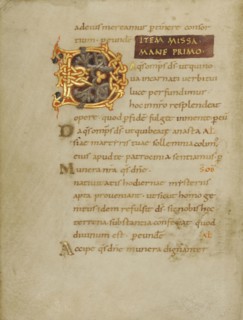 adeius mereamur pervenire consor
tium. per unde
ITEM MISSA
MANE PRIMO
Da qs omps ds ut qui no
ua incarnati uerbi tui
luce perfundimur
hoc in nro resplendeat
opere quod p fide fulget in mente. per
Da qs omps ds ut qui beatae anastasi
ae martyris tuae sollemnia colim
eius apud te patrocinia sentiamus. p
Munera nra qs dne
natiuitatis hodiernae mysteriis
apta proueniant. ut sicut homo ge
nitus idem refulsit ds. sic nobis haec
terrena substantia conferat quod
diuinum est. per unde
Accipe qs dne munera dignanter